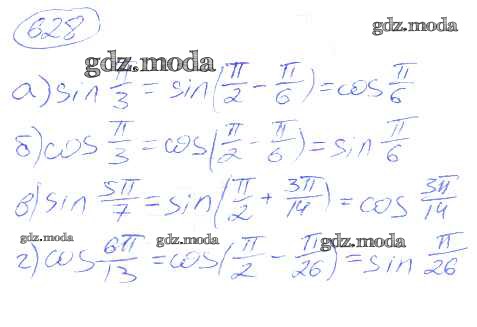 628
gdz.moda
gdz.moda
а) sin π/3 = sin(π/2 - π/6) = cos π/6
б) cos π/3 = cos(π/2 - π/6) = sin π/6
в) sin 5π/7 = sin(π/2 + 3π/14) = cos 3π/14
gdz.moda gdz.moda gdz.moda
г) cos 6π/13 = cos(π/2 - π/26) = sin π/26